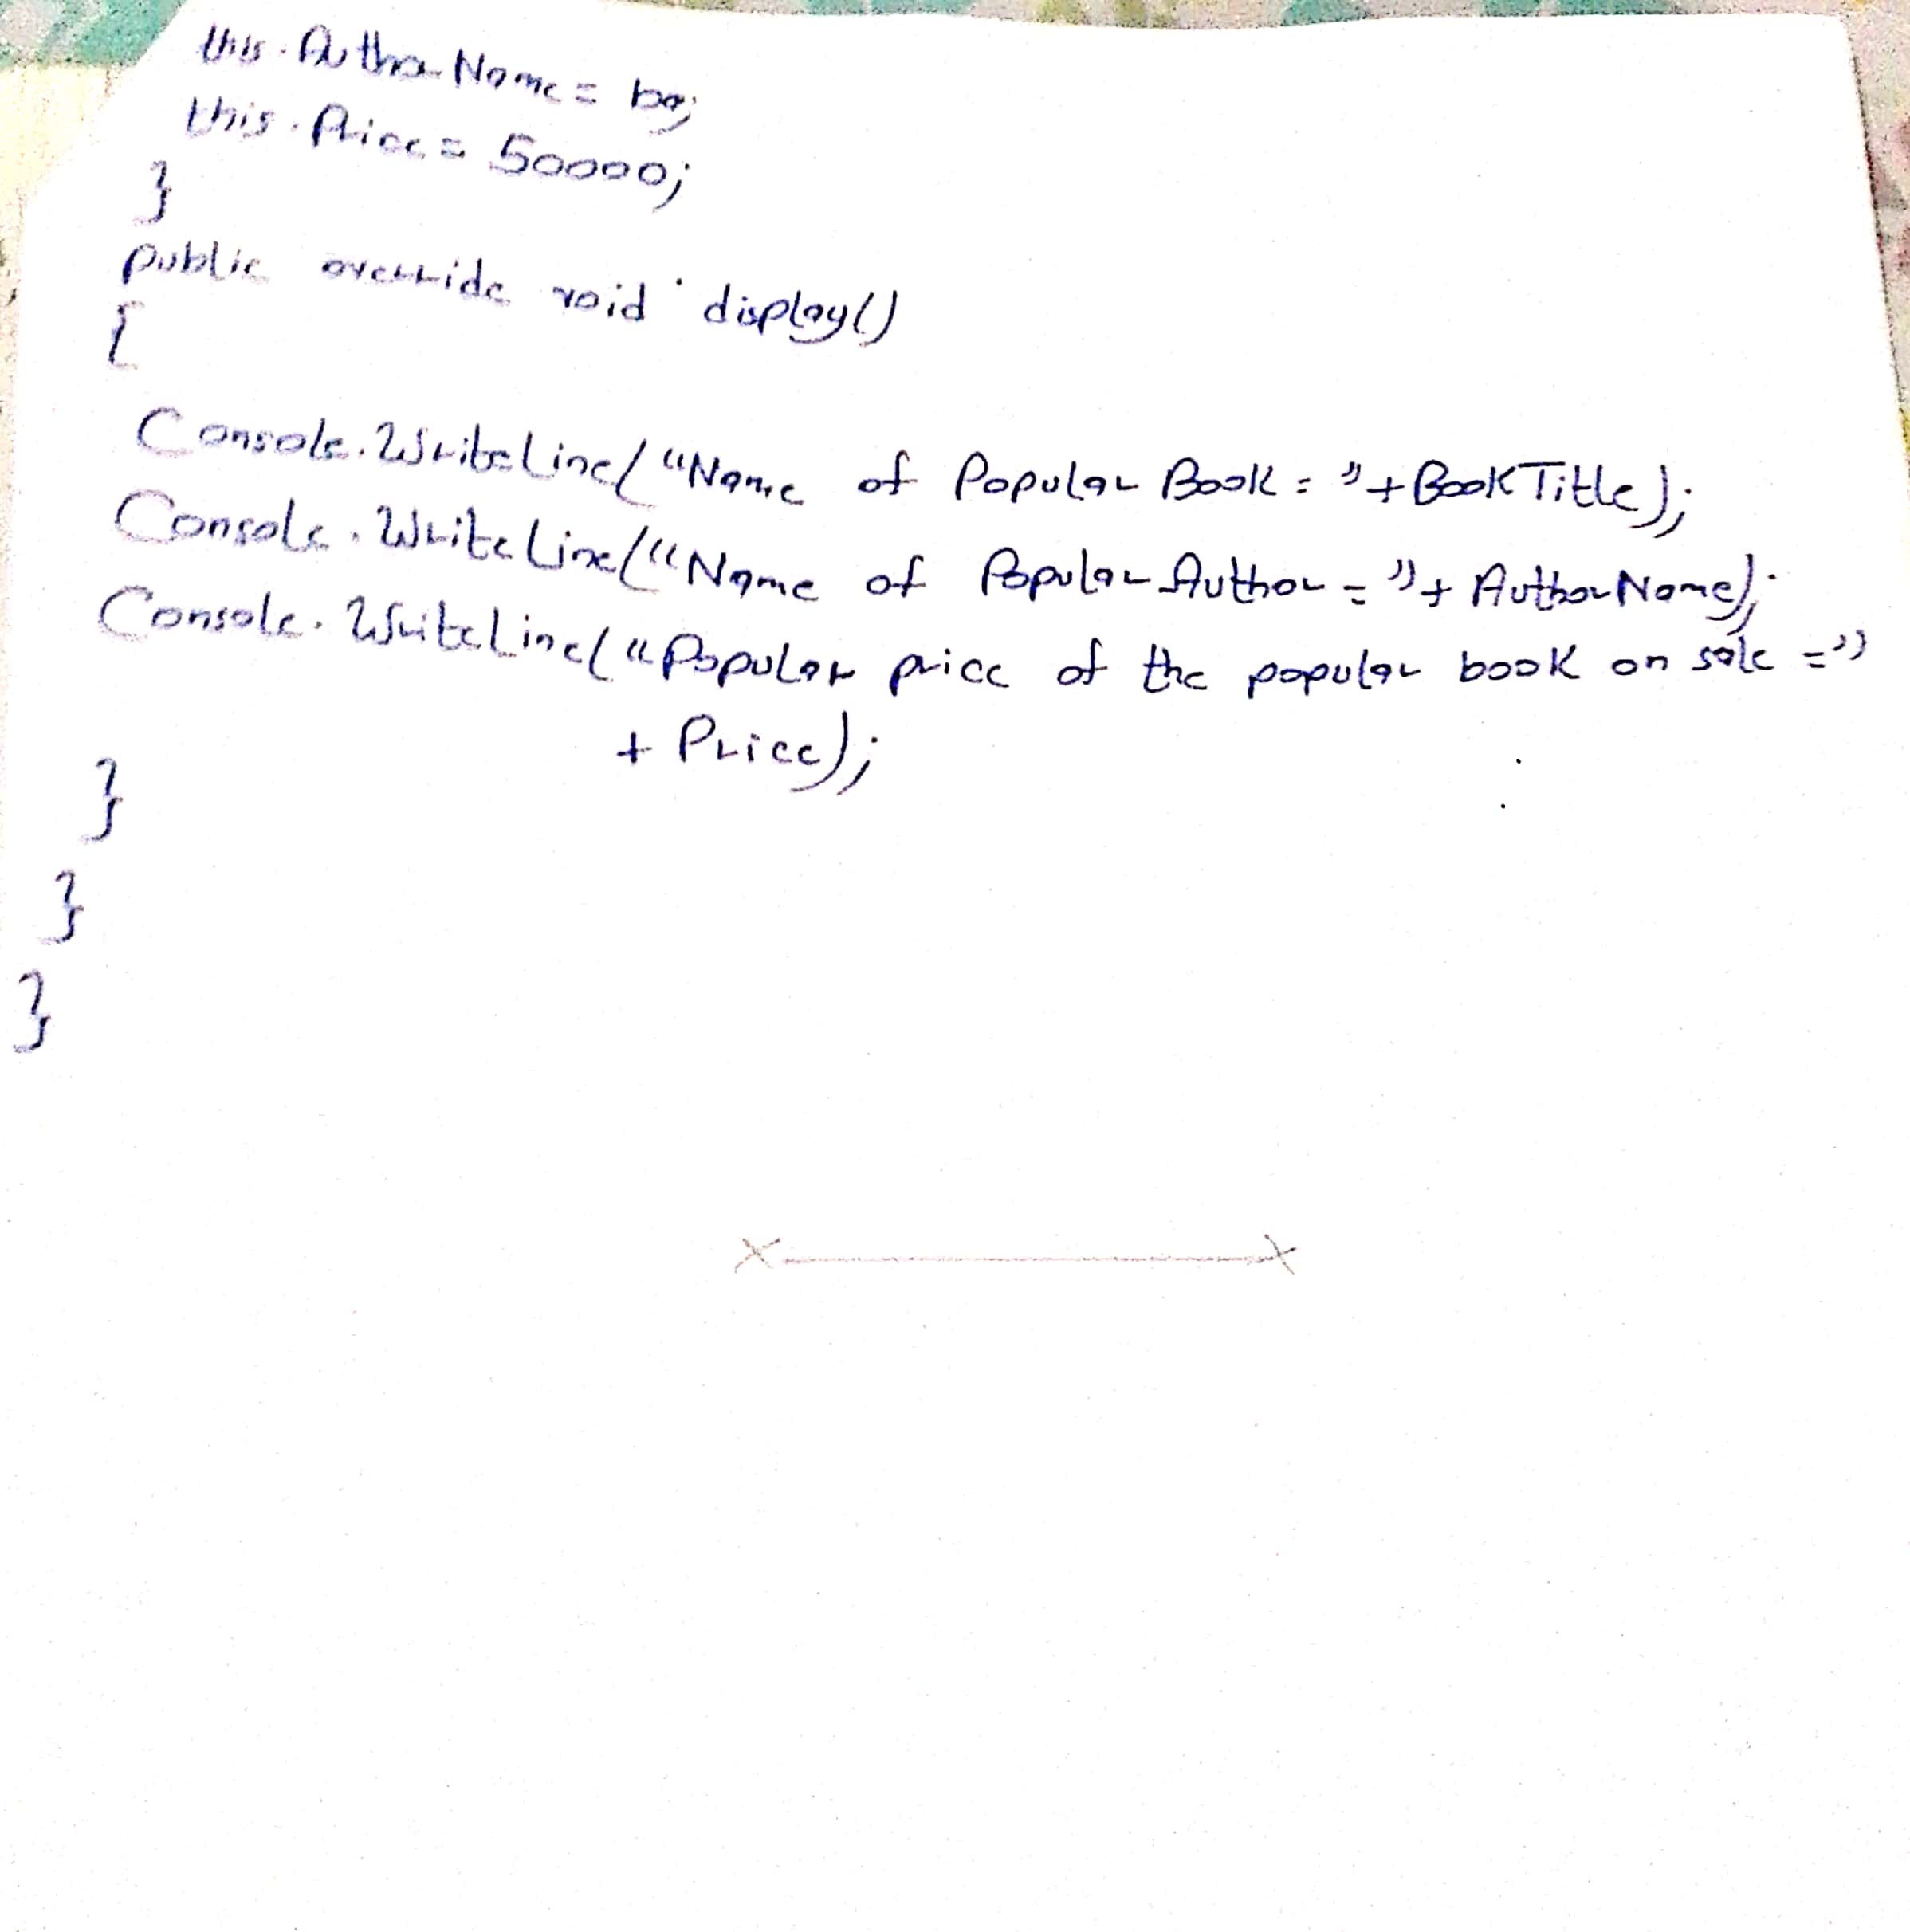 this.AuthorName = ba;
this.Price = 50000;
}
public override void display()
{
Console.WriteLine("Name of Popular Book = "+BookTitle);
Console.WriteLine("Name of Popular Author = "+ AuthorName);
Console.WriteLine("Popular price of the popular book on sale ="
+ Price);
}
}
}